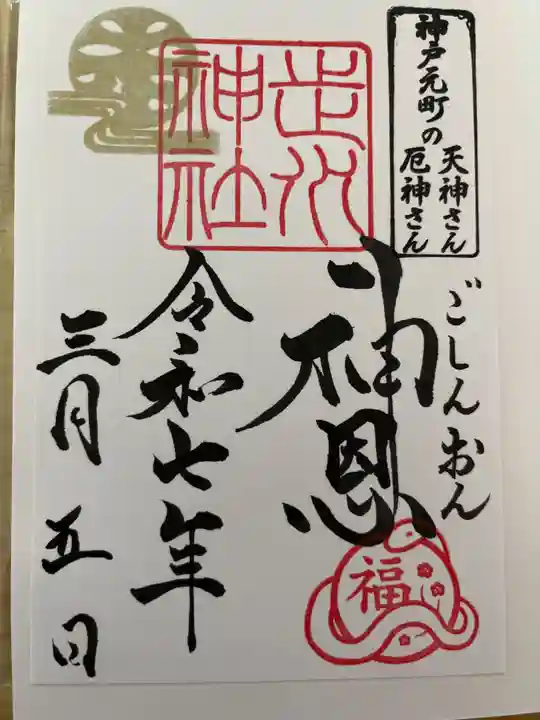 神戸元町の
天神さん
厄神さん
走水
神社
ごしんおん
神恩
福
令和七年
三月五日